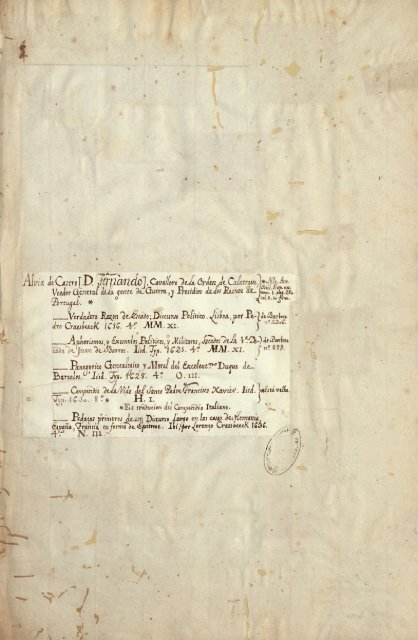 Alvia de Castro [D. Fernando]. Cavallero de la Orden de Calatrava,
Veedor General de la gente de Guerra, y Presidios de los Reinos de
Portugal. *
* Nic. Ant.
Verdadera Razon de Estado; Discurso Politico. Lisboa, por Pe-
dro Craesbeeck 1616. 4º MM. XI.
de Barbosa
Aphorismos, y Exemplos Politicos, y Militares, Sacados de la 1ª D
cada de Juan de Barros. Ibid. Typ. 1621. 4º MM. XI.
de Barbosa
nº 899.
Panegirico Genealogico y Moral del Excelentmo Duque de
Barcelos. Ibid. Typ. 1628. 4º O. III.
Compendio de la Vida del Santo Padre Francisco Xavier. Ibid.
Typ. 1630. 8º H. I.
* Es traducion del Compendio Italiano.
Pedaços primeros de un Discurso Largo en las cosas de Alemania,
España, Francia en forma de Epitome. Ibi. por Lorenzo Craesbeeck 1636.
4º N. III